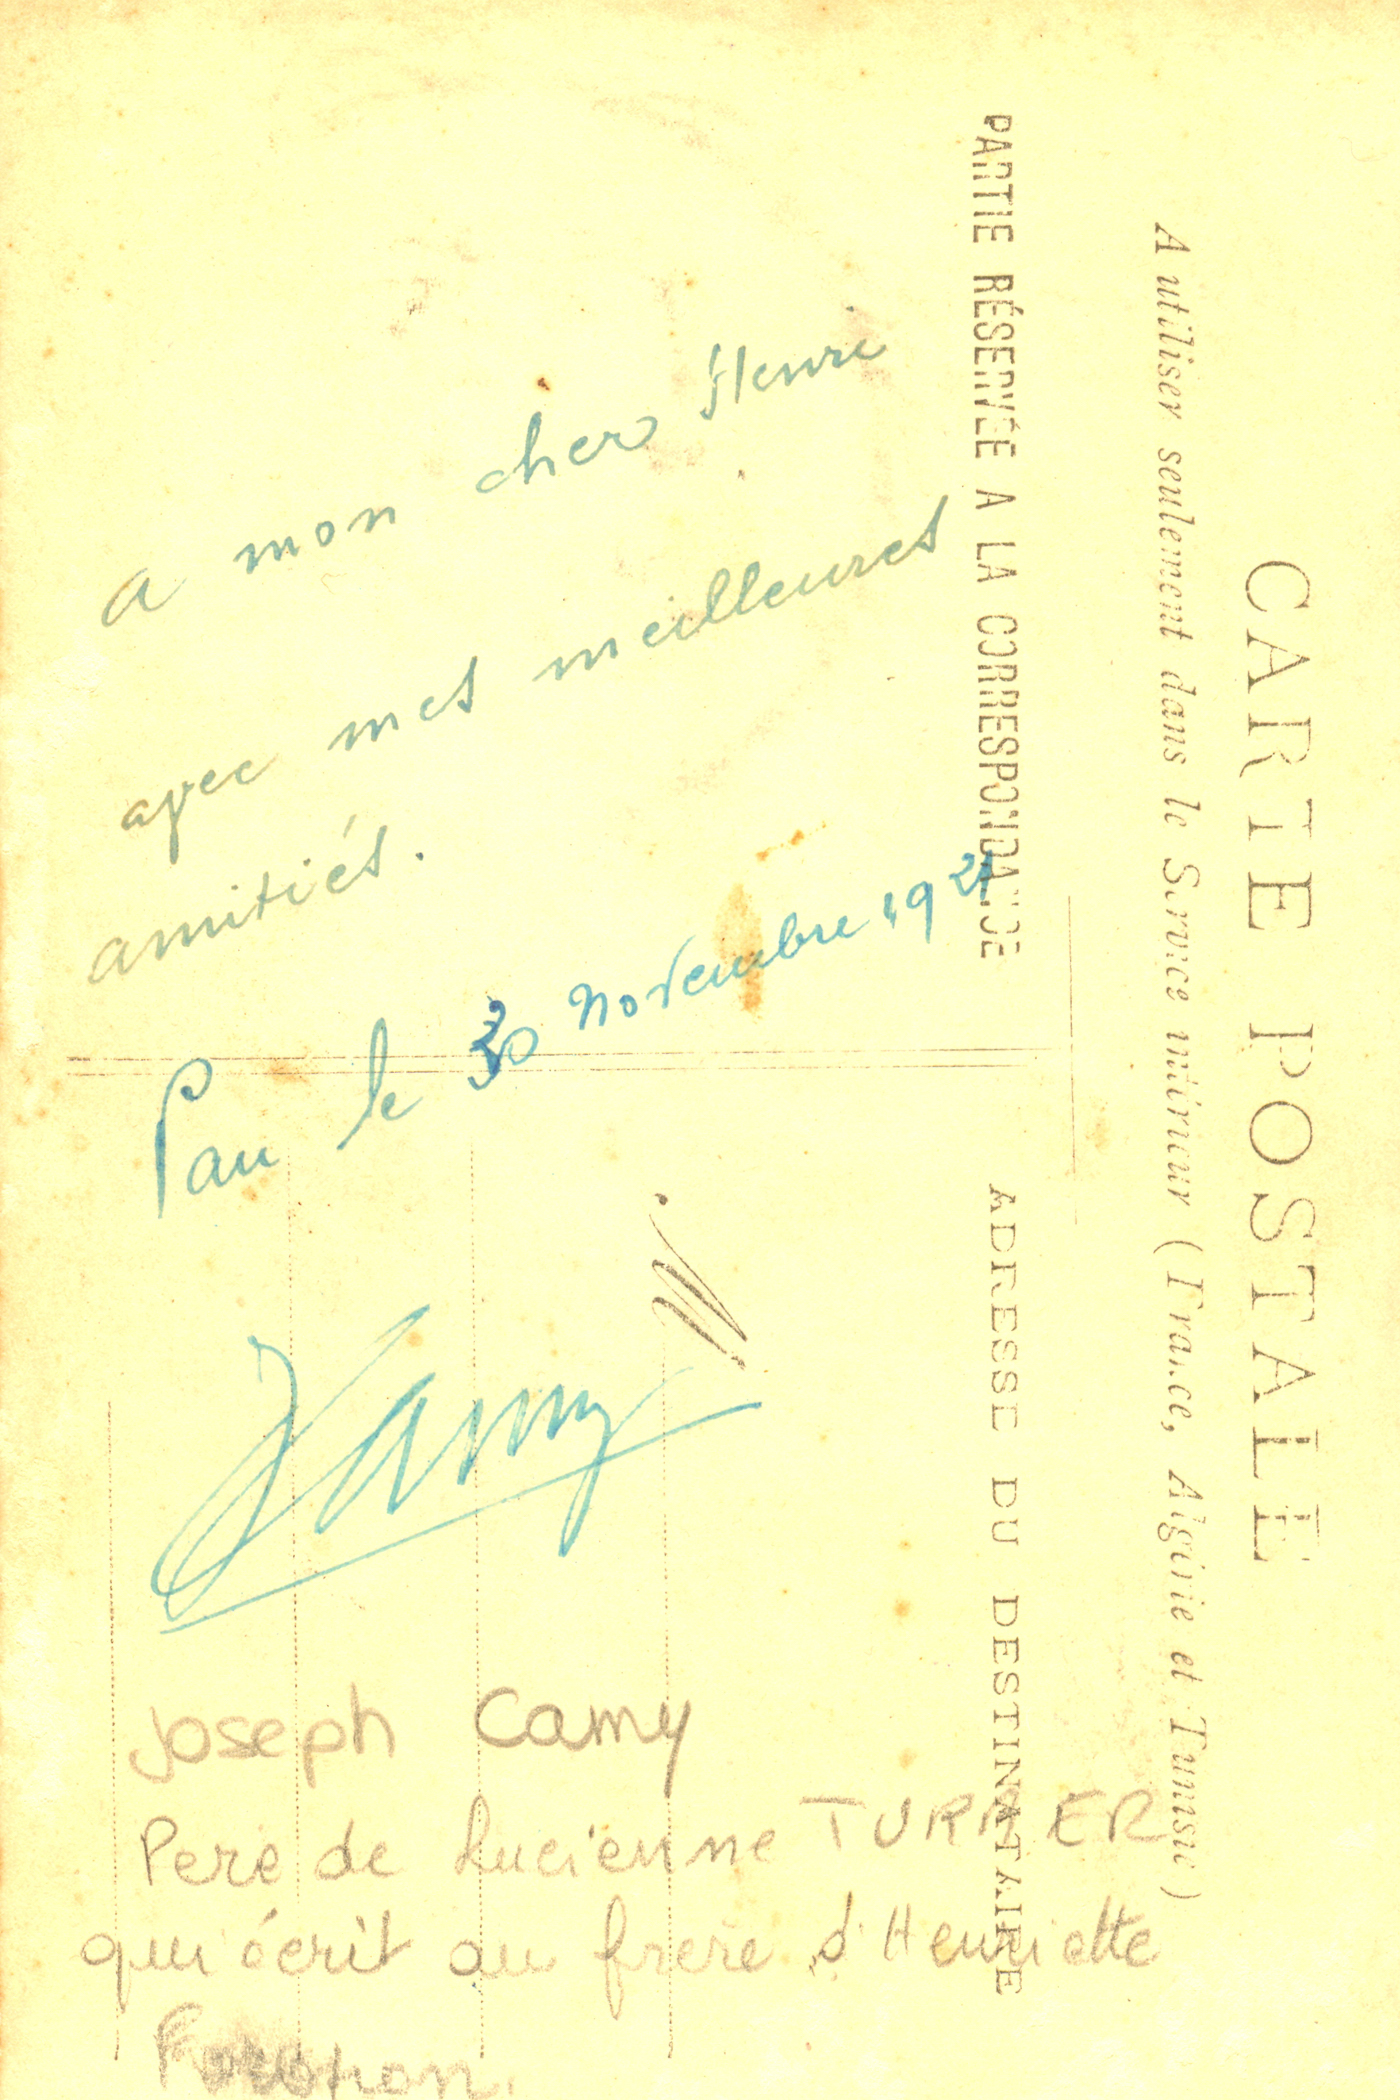 CARTE POSTALE
A utiliser seulement dans le Service intérieur (France, Algérie et Tunisie)
PARTIE RÉSERVÉE A LA CORRESPONDANCE
ADRESSE DU DESTINATAIRE
M
a mon cher Henri
avec mes meilleures
amitiés.
Pau le 30 Novembre 1921
Camy
Joseph Camy
Pere de Lucienne TURRIER
qui écrit au frere d'Henriette